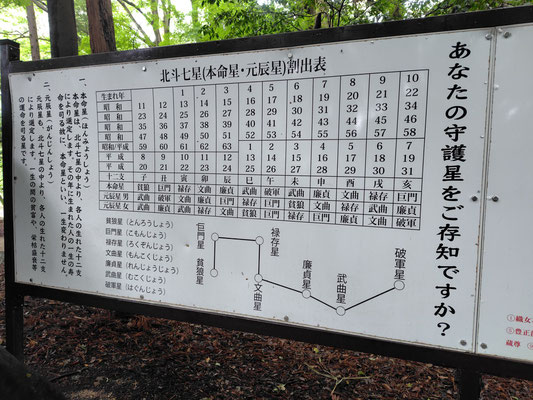 あなたの守護星をご存知ですか?
北斗七星(本命星・元辰星)割出表
生まれ年 1 2 3 4 5 6 7 8 9 10
昭和 11 12 13 14 15 16 17 18 19 20 21 22
昭和 23 24 25 26 27 28 29 30 31 32 33 34
昭和 35 36 37 38 39 40 41 42 43 44 45 46
昭和 47 48 49 50 51 52 53 54 55 56 57 58
昭和/平成 59 60 61 62 63 1 2 3 4 5 6 7
平成 8 9 10 11 12 13 14 15 16 17 18 19
平成 20 21 22 23 24 25 26 27 28 29 30 31
十二支 子 丑 寅 卯 辰 巳 午 未 申 酉 戌 亥
本命星 貪狼 巨門 禄存 文曲 廉貞 武曲 破軍 武曲 廉貞 文曲 禄存 巨門
元辰星 男
元辰星 女
貪狼星(とんろうじょう)
巨門星(こもんじょう)
禄存星(ろくぞんじょう)
文曲星(もんこくじょう)
廉貞星(れんじょうじょう)
武曲星(むこくじょう)
破軍星(はぐんじょう)
巨門星
貪狼星
禄存星
文曲星
廉貞星
武曲星
破軍星
一、本命星(ほんみょうじょう)
本命星は、北斗七星の中より、各人の生れた十二支
により選定します。その年に生まれた人の一生の寿
命を司る故に、本命星といい、一生変わりません。
二、元辰星(がんじんしょう)
元辰星も、北斗七星の中より、各人の生れた十二支
により選定します。一生の間の貧富や、栄枯盛衰等
の運命を司る星です。